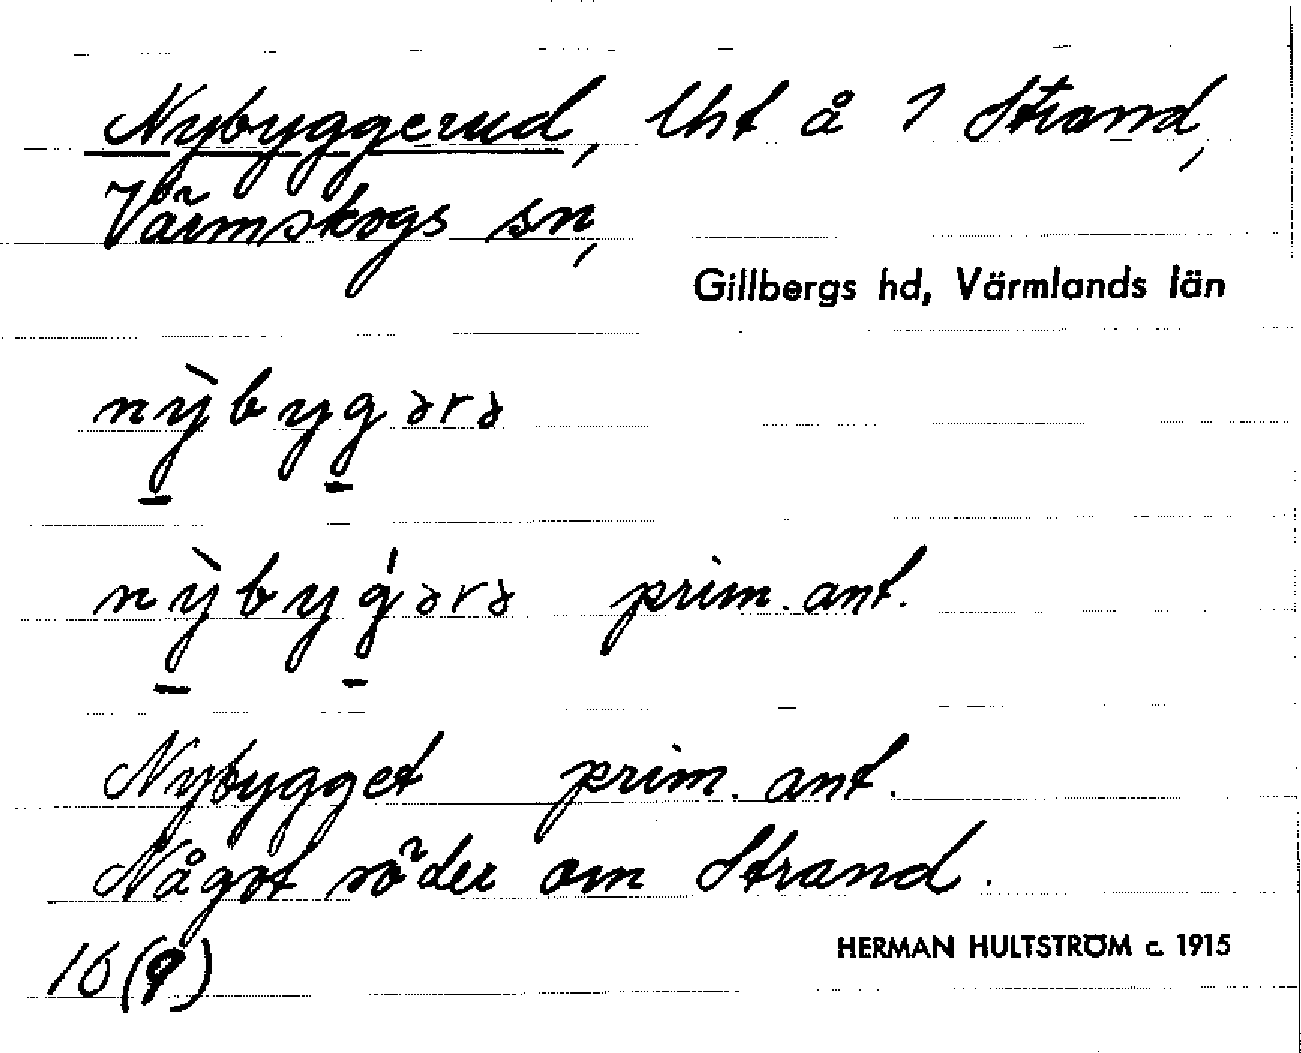 Nybyggerud, lht å 1 Strand,
Värmskogs sn,
Gillbergs hd, Värmlands län
nỳbygərə
nỳbyǵərə prim. ant.
Nybygget prim. ant.
Något söder om Strand.
16(9)
HERMAN HULTSTRÖM c. 1915